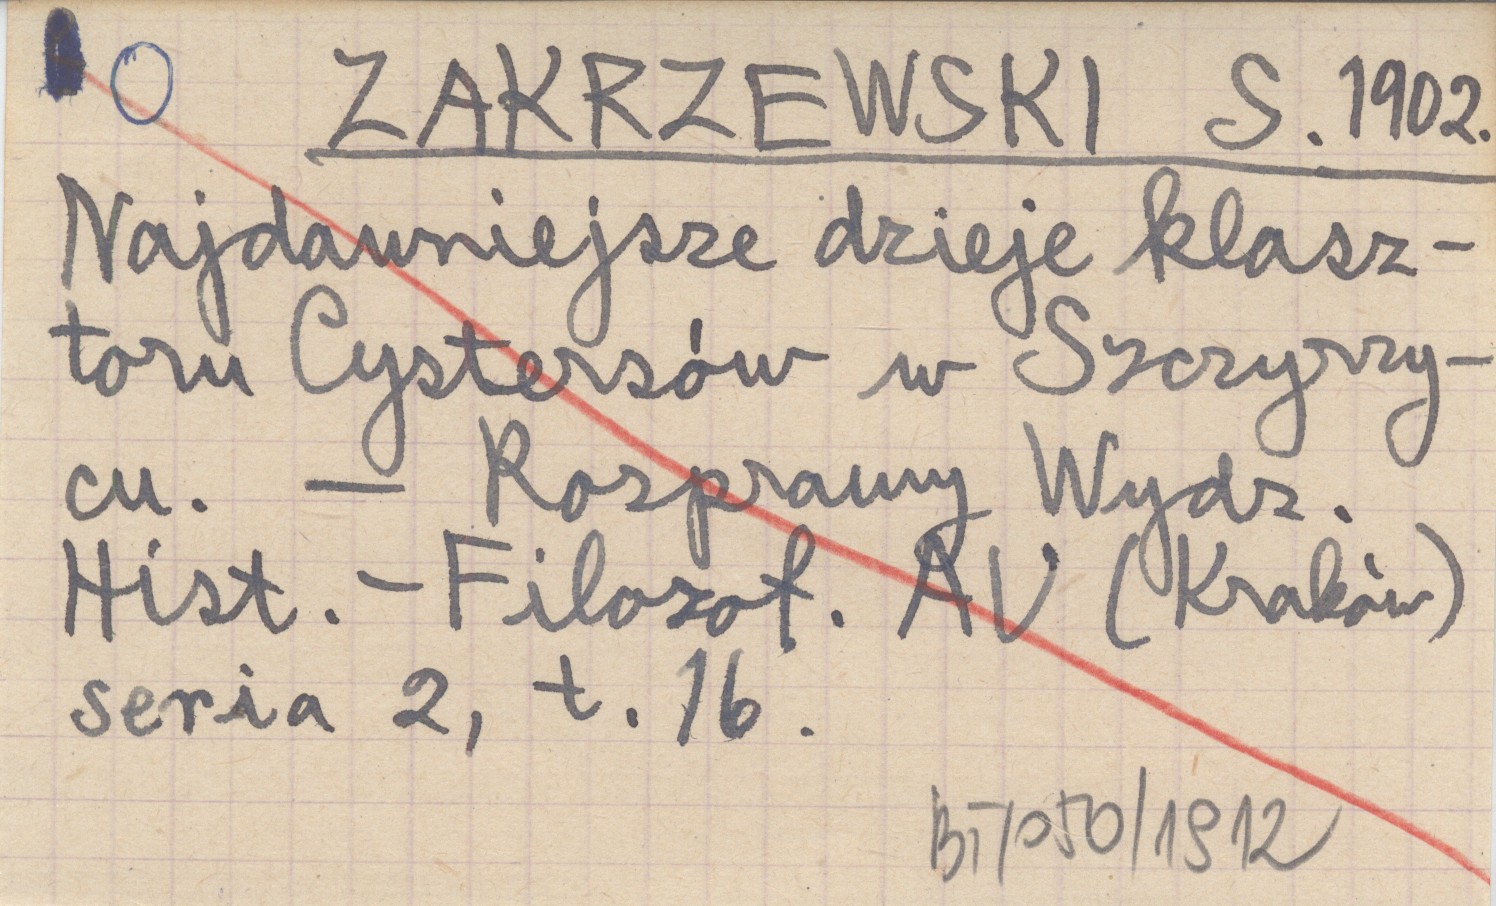 O ZAKRZEWSKI S. 1902.
Najdawniejsze dzieje klasz-
toru Cystersów w Szczyrzy-
cu. — Rozprawy Wydz.
Hist.-Filozof. AU (Kraków)
seria 2, t. 16.
/1912